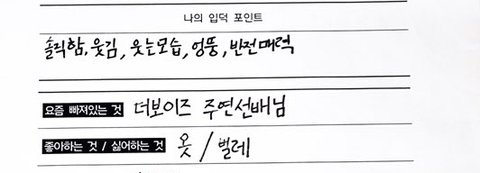 나의 입덕 포인트
솔직함, 웃김, 웃는모습, 엉뚱, 반전매력
요즘 빠져있는 것 더보이즈 주연선배님
좋아하는 것 / 싫어하는 것 옷 / 벌레